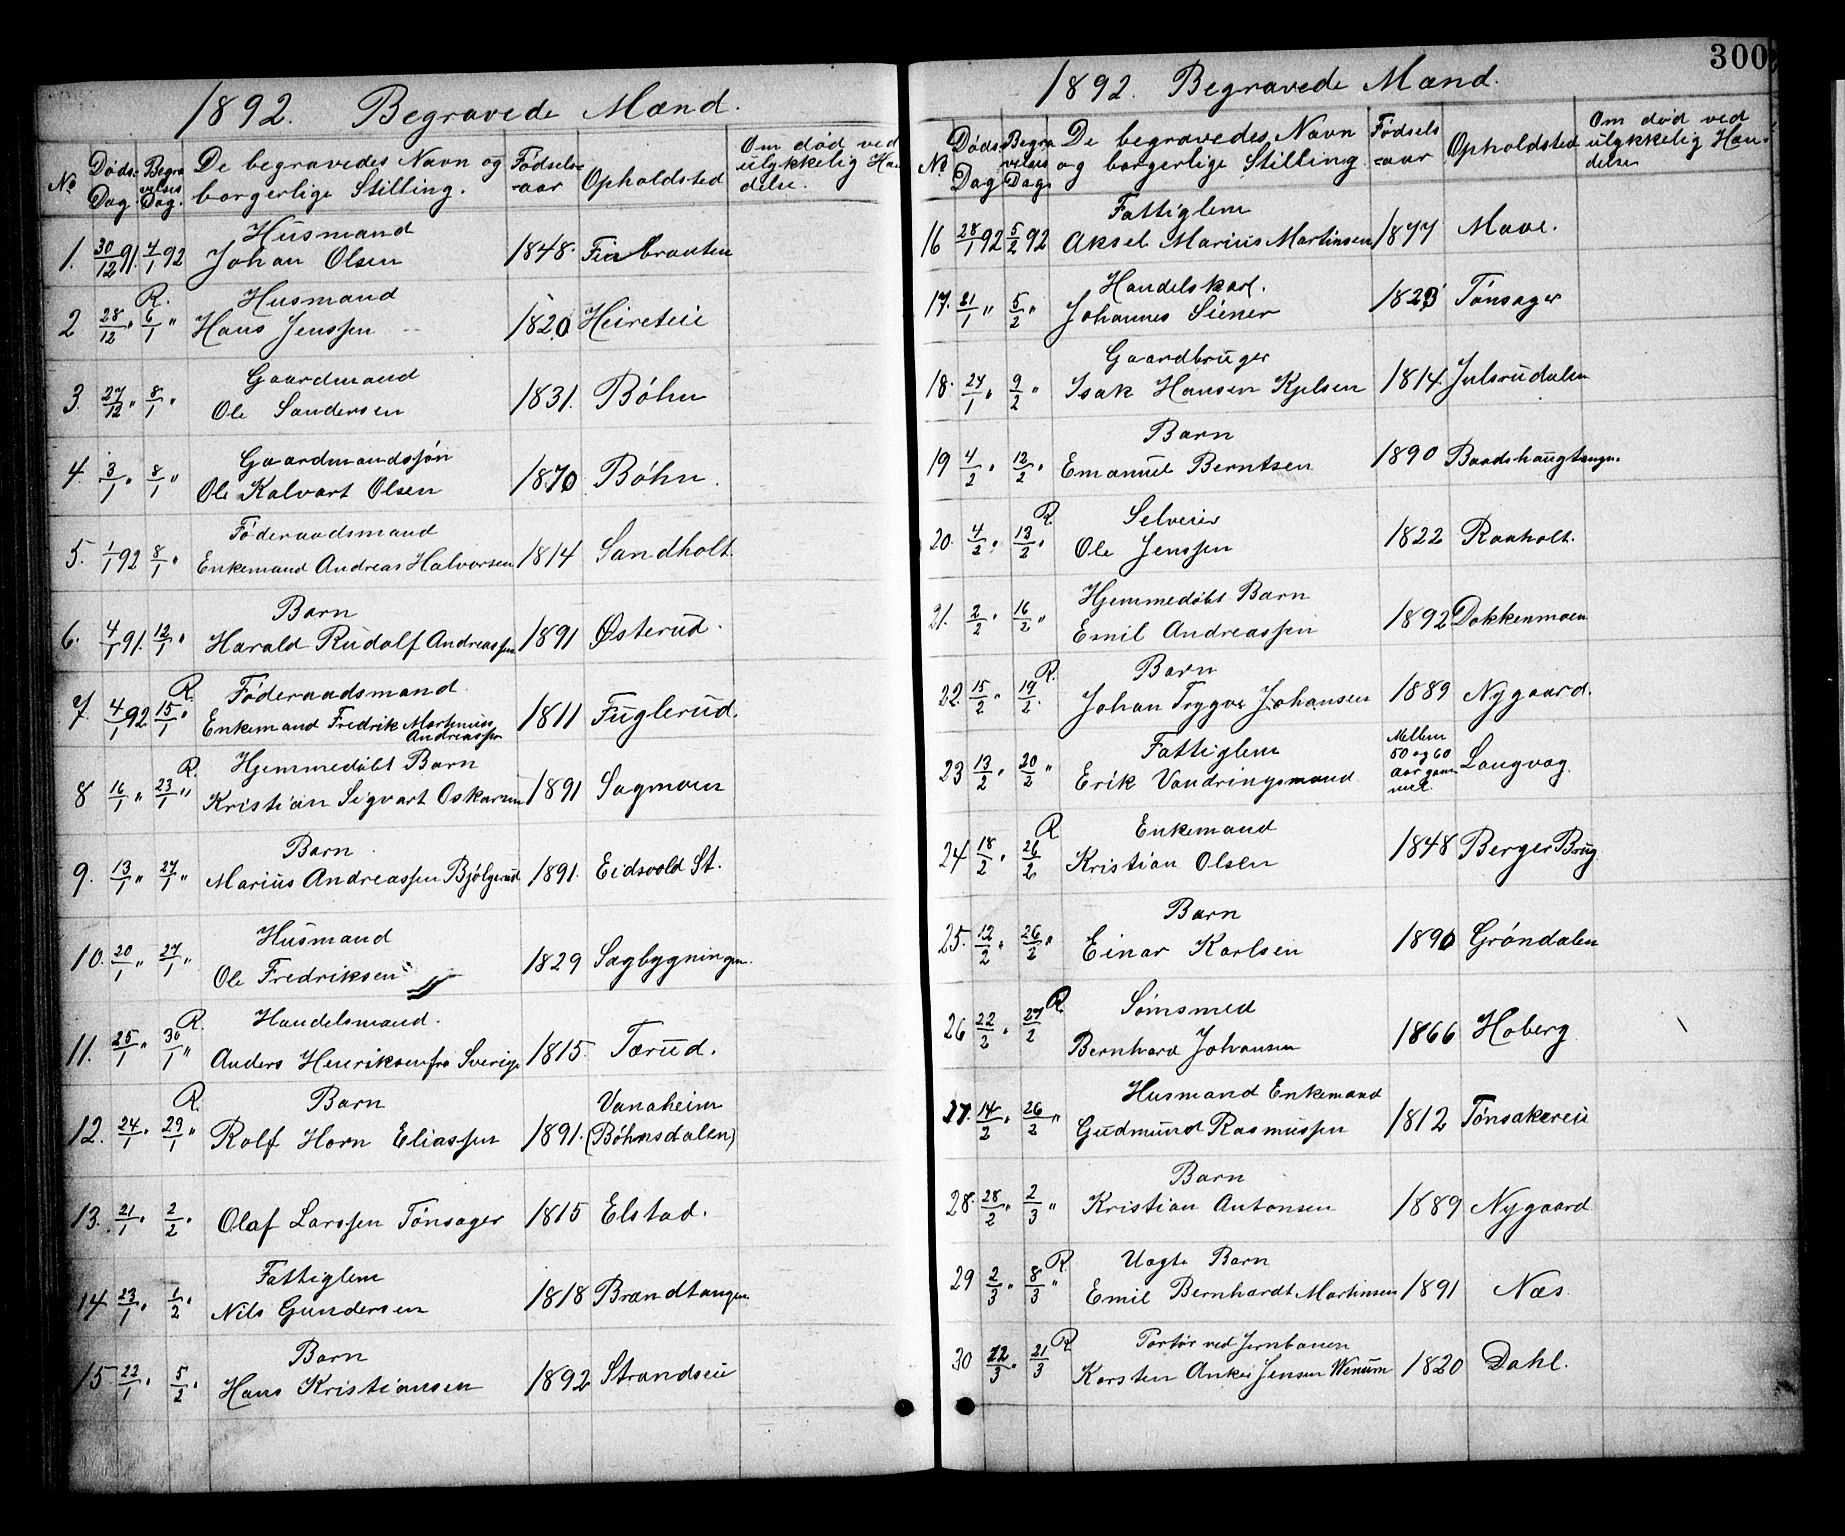 300
1892. Begravede Mænd.
No Døds-Dag. Begravelses Dag. De begravedes Navn og borgerlige Stilling. Fødsels-aar Opholdsted Om død ved ulykkelig Hændelse.
Husmand
1. 30/12 91. 4/1 92 Johan Olsen 1848. Finbraaten
R. Husmand
2 28/12 " 6/1 " Hans Jenssen 1820 Heireteie
Gaardmand
3. 27/12 " 8/1 " Ole Sandersen 1831. Bøhn
Gaardmandssøn
4. 3/1 " 8/1 " Ole Kalvart Olsen 1870 Bøhn.
Føderaadsmand
5. 1/1 92 8/1 " Enkemand Andreas Halvorsen 1814 Sandholt.
Barn
6. 4/1 91. 12/1 " Harald Rudolf Andreassen 1891 Østerud.
R. Føderaadsmand
7. 4/1 92 15/1 " Enkemand Fredrik Martinius Andreassen 1811 Fuglerud.
R. Hjemmedøbt Barn
8 16/1 " 23/1 " Kristian Sigvart Oskarsen 1891 Sagmoen
Barn
9. 13/1 " 27/1 " Marius Andreassen Bjølgerud 1891. Eidsvold St.
Husmand
10. 20/1 " 27/1 " Ole Fredriksen 1829 Sagbygningen.
R. Handelsmand.
11. 25/1 " 30/1 " Anders Henriksen fra Sverige 1815. Tærud.
R. Barn Vanaheim
12. 24/1 " 29/1 " Rolf Horn Eliassen 1891. (Bøhnsdalen)
13. 21/1 " 2/2 " Olaf Larssen Tønsager 1815 Elstad.
Fattiglem
14 23/1 " 1/2 " Nils Gundersen 1818 Brandtangen
Barn
15 22/1 " 5/2 " Hans Kristiansen 1892 Strandseie
1892. Begravede Mænd.
No Døds-Dag Begravelses Dag De begravedes Navn og borgerlige Stilling. Fødsels-aar Opholdsted Om død ved ulykkelig Hændelse
Fattiglem
16 28/1 92 5/2 92 Aksel Marius Martinsen 1877 Moae.
Handelskarl.
17. 21/1 " 5/2 " Johannes Siener 1823 Tønsager
Gaardbruger
18. 24/1 " 9/2 " Isak Hansen Kjelsen 1814. Julsrudalen
Barn
19 4/2 " 12/2 " Emanuel Berntsen 1890 Baadshaugtangen.
R. Selveier
20. 4/2 " 13/2 " Ole Jenssen 1822 Raaholt.
Hjemmedøbt Barn
21. 2/2 " 16/2 " Emil Andreassen 1892 Dokkenmoen
R. Barn
22. 15/2 " 19/2. Johan Trygve Johansen 1889 Nygaard.
Fattiglem Mellem
23 13/2 " 20/2 " Erik Vandringsmand 50 og 60 Aar gammel. Langvag.
R. Enkemand
24 18/2 " 26/2 Kristian Olsen 1848 Berger Brug
Barn
25. 12/2 " 26/2 " Einar Karlsen 1890 Grøndalen
R. Sømsmed
26 22/2 " 27/2 Bernhard Johansen 1866 Hoberg
Husmand Enkemand
27. 14/2 " 26/2 " Gudmund Rasmussen 1812 Tønsakereie
Barn
28. 28/2 " 2/3 " Kristian Antonsen 1889 Nygaard
R. Uægte Barn
29 2/3 " 8/3 " Emil Bernhardt Martinsen 1891 Næs.
R. Portør ved Jernbanen
30 12/3 " 21/3 Karsten Anker Jensen Wenum 1820 Dahl.